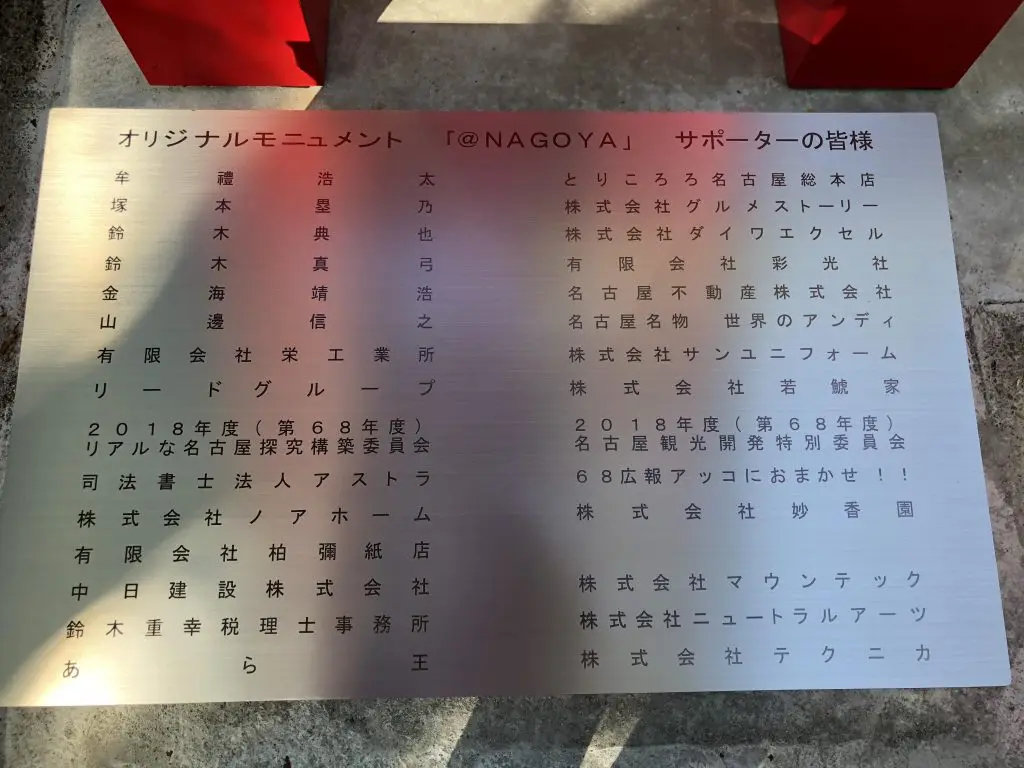 オリジナルモニュメント 「@NAGOYA」 サポーターの皆様
牟禮浩太
塚本塁乃
鈴木典也
鈴木真弓
金海靖浩
山邊信之
有限会社栄工業所
リードグループ
2018年度(第68年度)
リアルな名古屋探究構築委員会
司法書士法人アストラ
株式会社ノアホーム
有限会社柏彌紙店
中日建設株式会社
鈴木重幸税理士事務所
あら王
とりころろ名古屋総本店
株式会社グルメストーリー
株式会社ダイワエクセル
有限会社彩光社
名古屋不動産株式会社
名古屋名物 世界のアンディ
株式会社サンユニフォーム
株式会社若鯱家
2018年度(第68年度)
名古屋観光開発特別委員会
68広報アッコにおまかせ!!
株式会社妙香園
株式会社マウンテック
株式会社ニュートラルアーツ
株式会社テクニカ